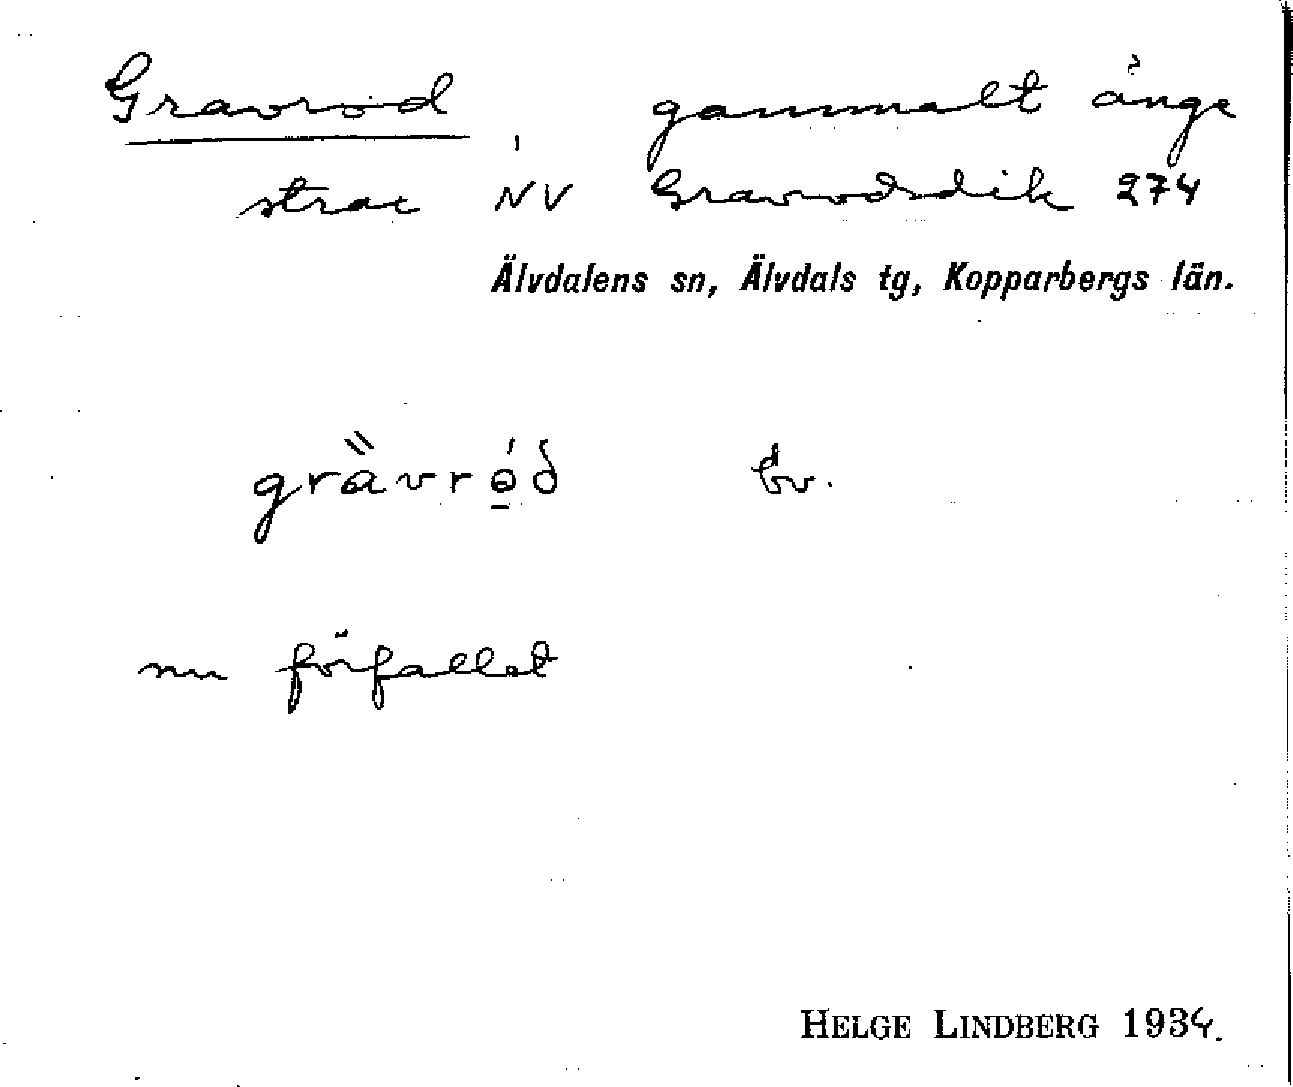 Gravrod, gammalt änge
strax NV Gravrodsdik 274
Älvdalens sn, Älvdals tg, Kopparbergs län.
grȁvró̱ð bv.
nu förfallet
HELGE LINDBERG 1934.